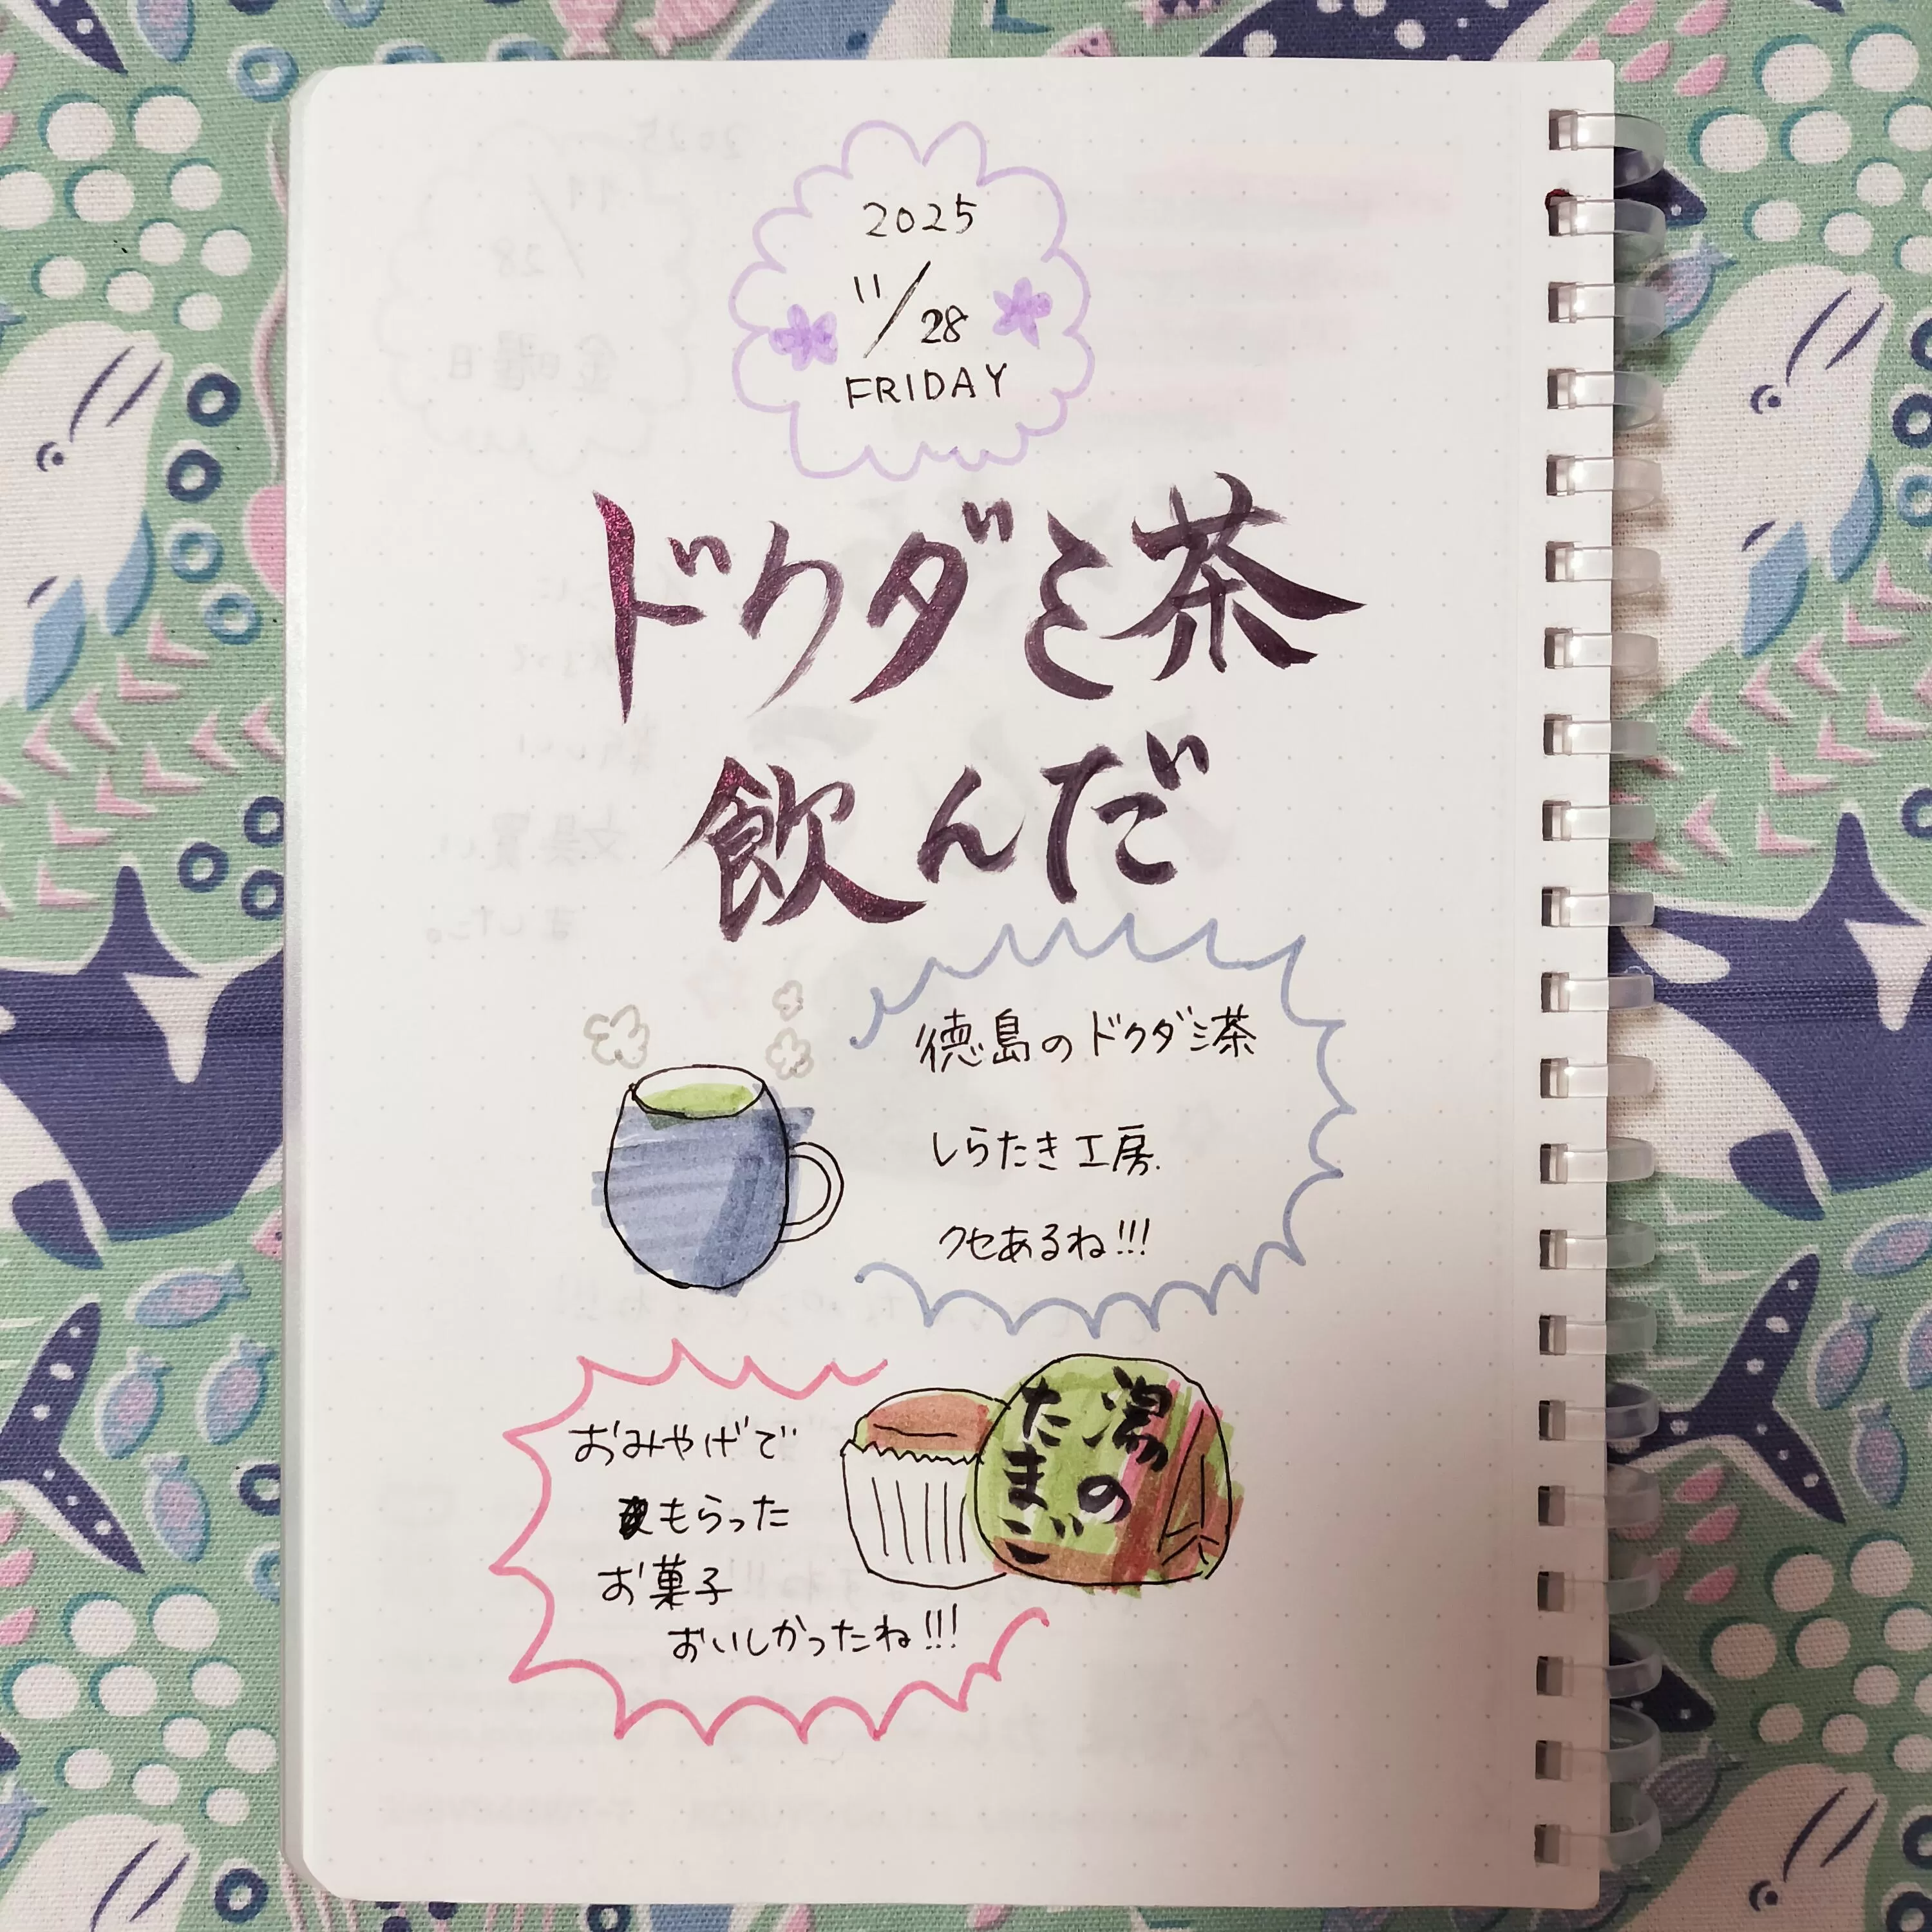 2025
11/28
FRIDAY
ドクダミ茶
飲んだ
徳島のドクダミ茶
しらたき工房
クセあるね!!!
おみやげで
もらった
お菓子
おいしかったね!!!
湯の
たまご